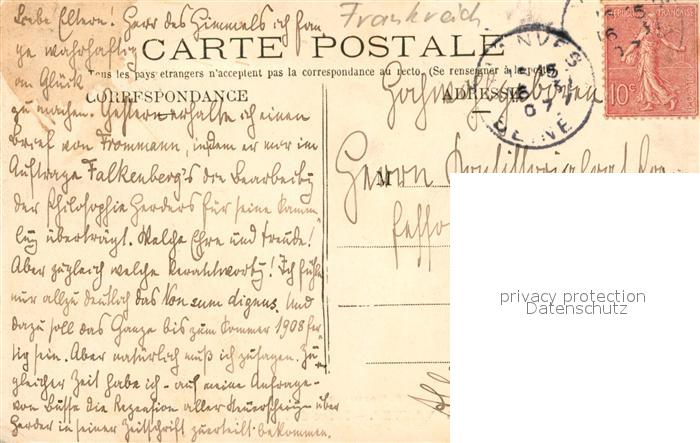 Liebe Eltern! Herr des Himmels ich fan-
Frankreich
ge wahrhaftig
an Glück
zu machen. Gestern erhalte ich einen
Brief von Frommann, indem er mir im
Auftrage Falkenberg's die Bearbeitg
der Philosophie Herders für seine Samm-
lug überträgt. Welche Ehre und Freude!
Aber zugleich welche Verantwortg! Ich fühle
nur allzu deutlich das Non sum dignus. Und
dazu soll das Ganze bis zum Sommer 1908 fer-
tig sein. Aber natürlich muß ich zusagen. Zu-
gleicher Zeit habe ich - auf meine Anfrage -
von Busse die Rezension aller Neuerscheing über
Herder in seiner Zeitschrift zuerteilt bekommen.
CARTE POSTALE
Tous les pays étrangers n'acceptent pas la correspondance au recto (Se renseigner à la poste)
CORRESPONDANCE
ADRESSE
Hochwohlgeboren
M
Herrn
VES
SEINE
RÉPUBLIQUE FRANÇAISE
10c
privacy protection
Datenschutz